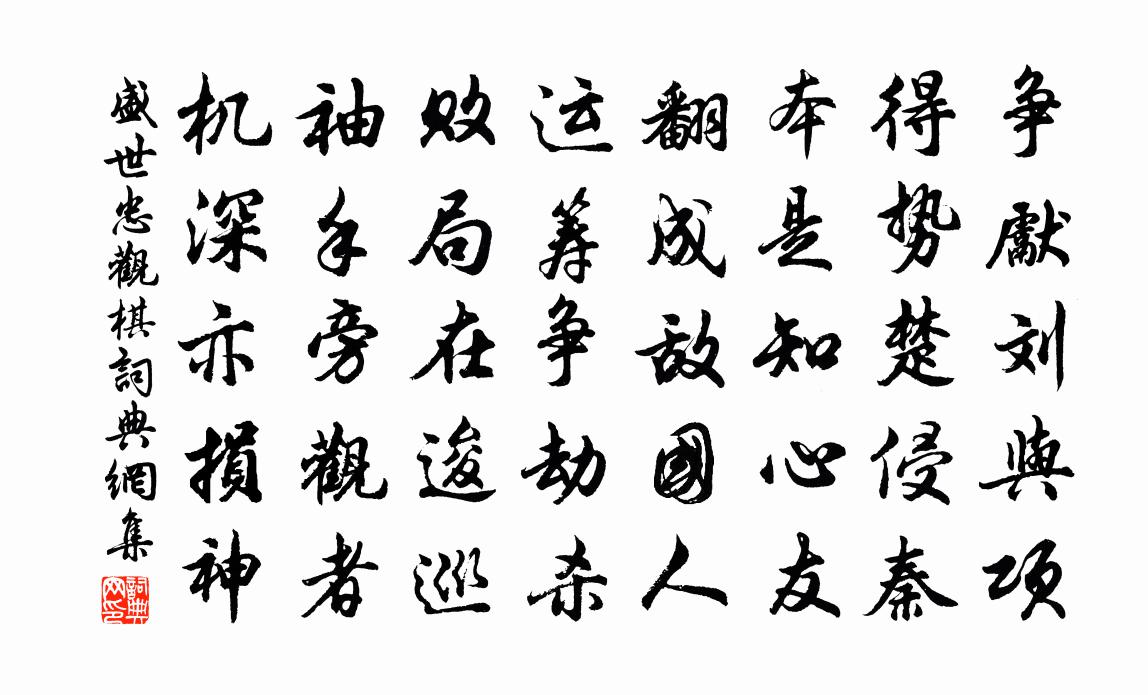 争獻刘與项
得势楚侵秦
本是知心友
翻成敌國人
运筹争劫杀
败局在逡巡
袖手旁觀者
机深亦損神
盛世忠觀棋詞典網集
詞典网印